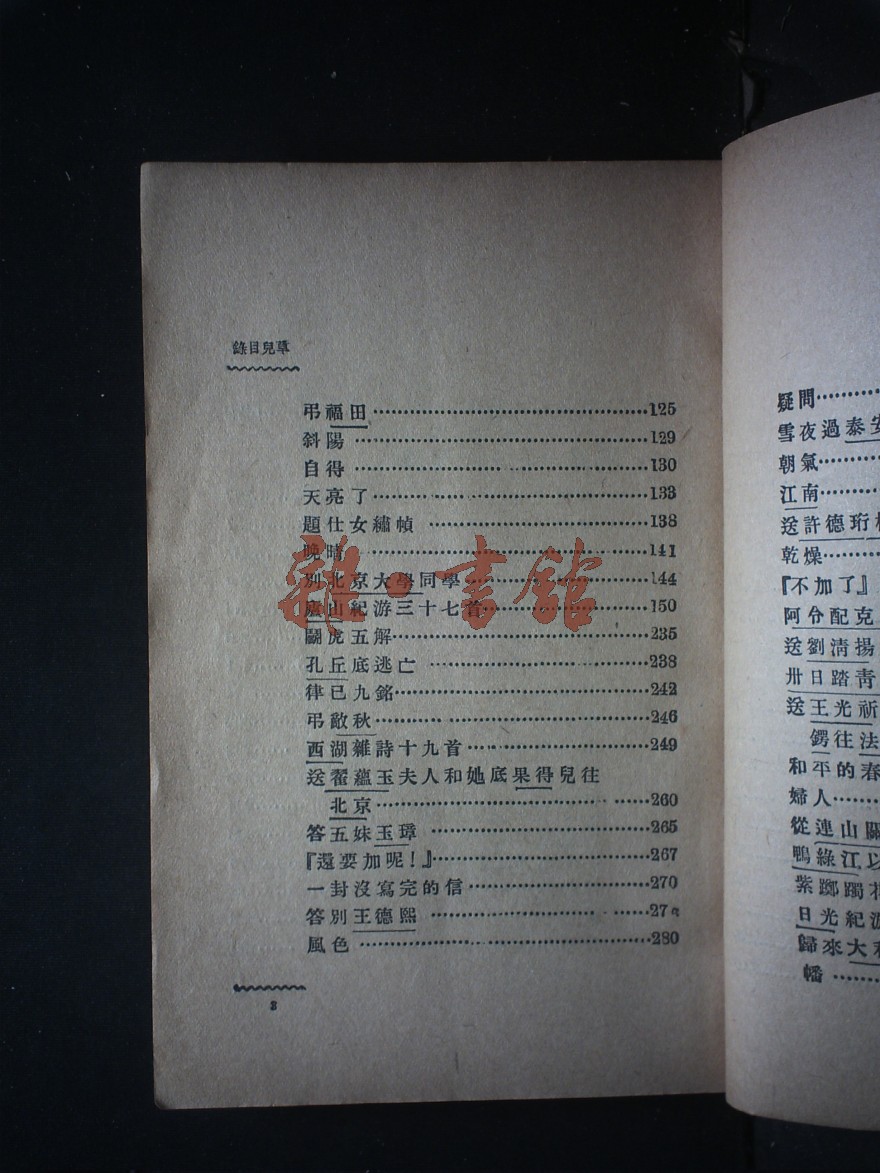 草兒目錄
弔福田……125
斜陽……129
自得……130
天亮了……133
題仕女繡幀……138
晚晴……141
別北京大學同學……144
廬山紀游三十七首……150
鬭虎五解……235
孔丘底逃亡……238
律已九銘……242
弔敵秋……246
西湖雜詩十九首……249
送翟蘊玉夫人和她底果得兒往
北京……260
答五妹玉璋……265
『還要加呢！』……267
一封沒寫完的信……270
答別王德熙……27
風色……280
雜·書館
疑問……
雪夜過泰安
朝氣……
江南……
送許德珩
乾燥……
『不加了』
阿令配克
送劉清揚
卅日踏青
送王光祈
鍔往法
和平的春
婦人……
從連山關
鴨綠江以
紫躑躅
日光紀游
歸來大
幡……